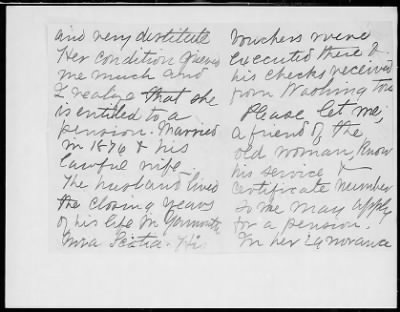 and very destitute
Her condition grieves
me much and
I realize that she
is entitled to a
pension. Married
in 1876 & his
lawful wife.
The husband lived
the closing years
of his life in Yarmouth
Nova Scotia. His
Vouchers were
executed there &
his checks received
from Washington
Please let me,
a friend of the
old woman, know
his service &
certificate number
so me may apply
for a pension.
In her ignorance